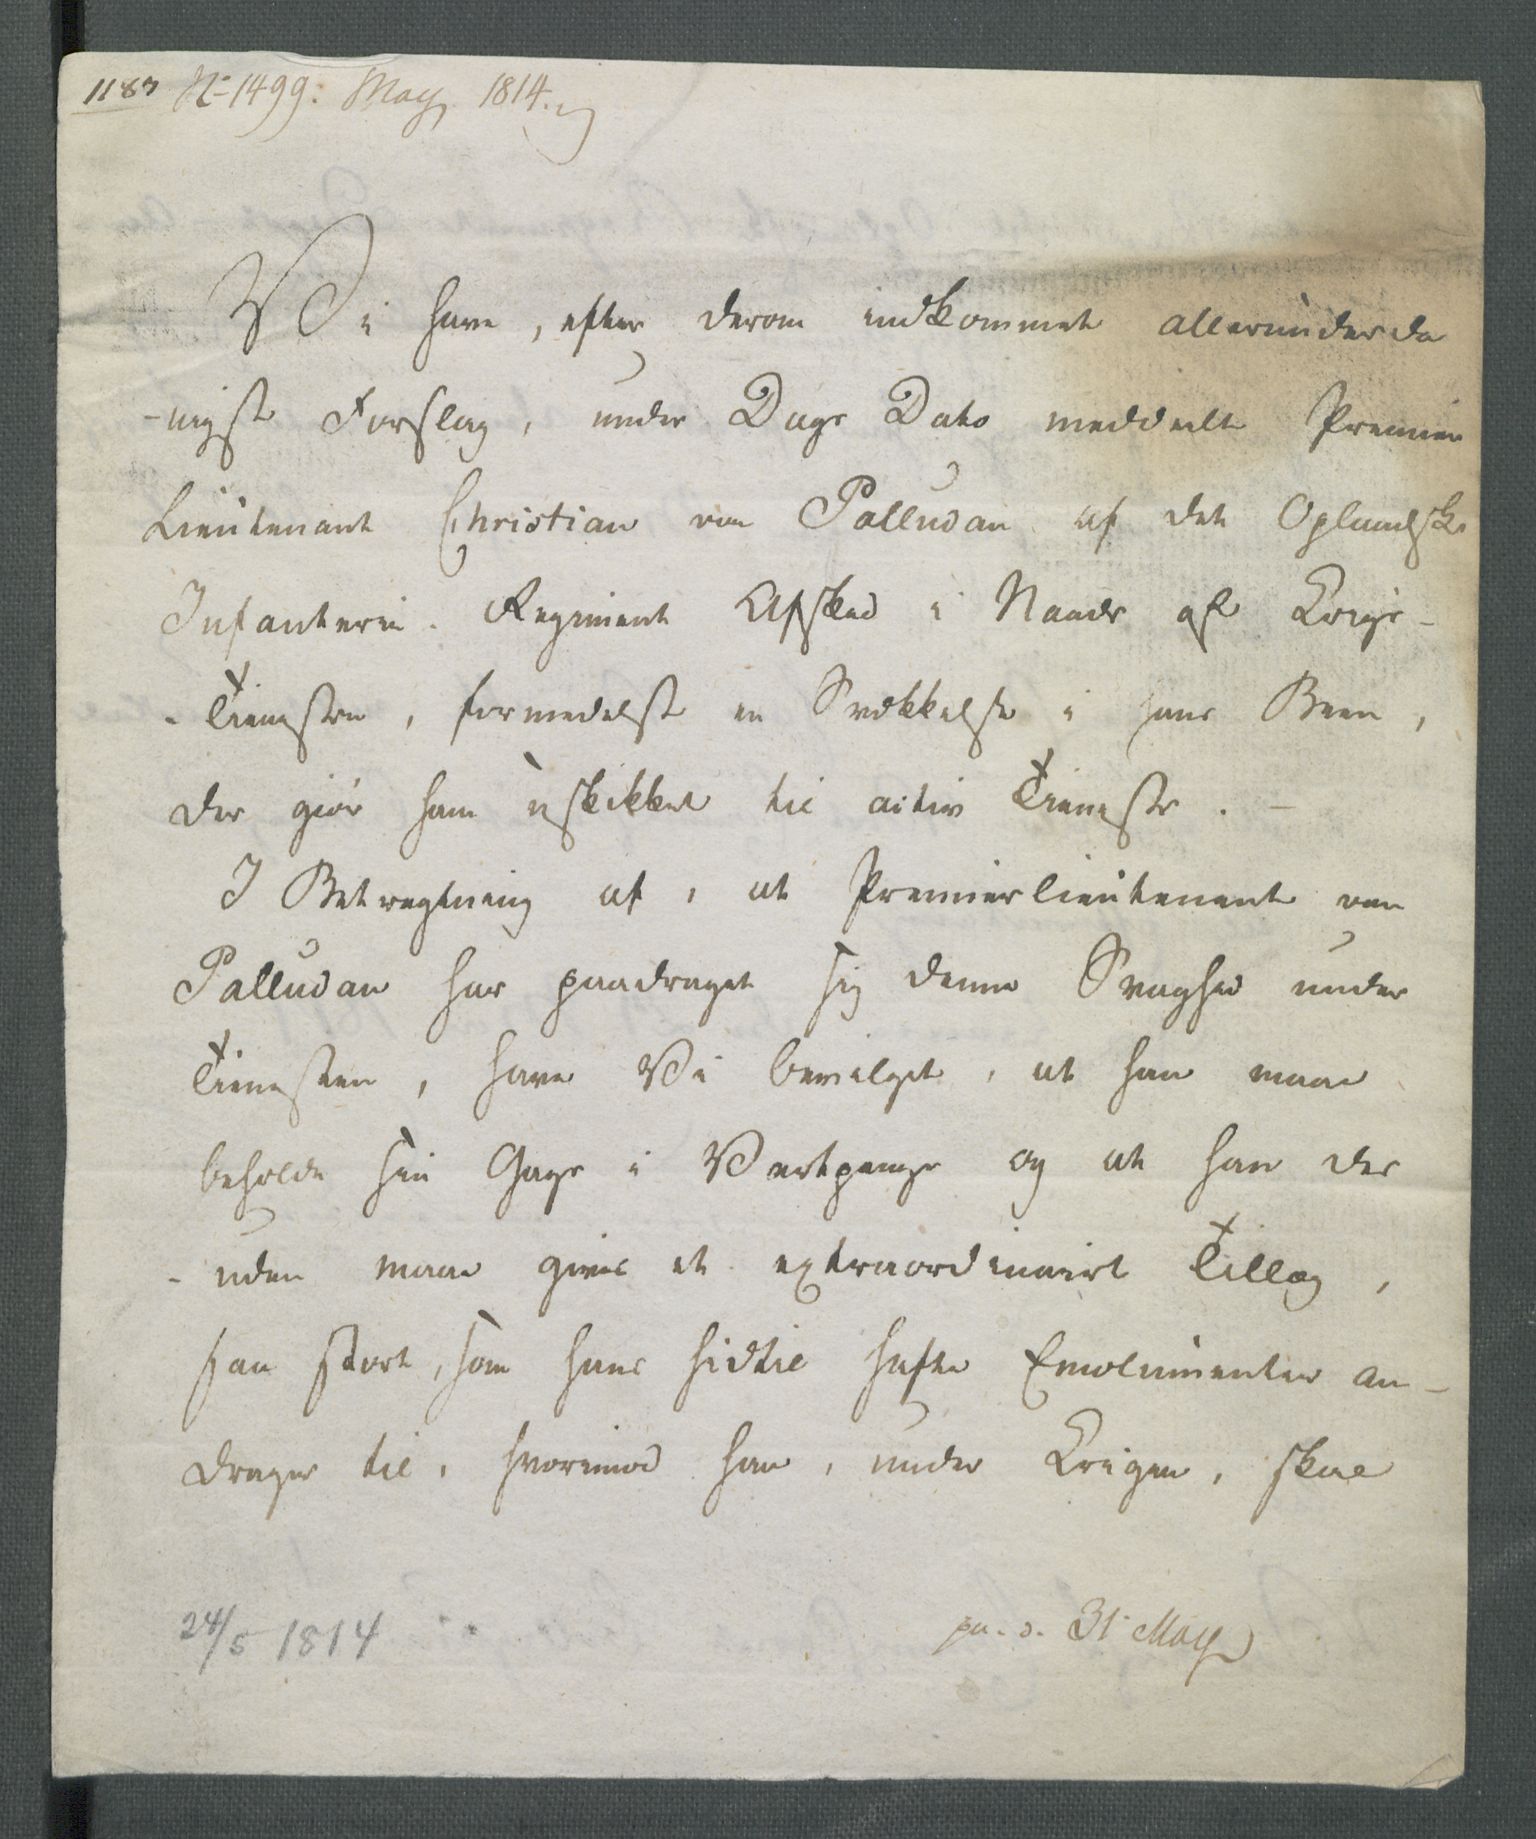 1187 No 1499. May 1814.
Vi have, efter derom indkommet allerunderda
-nigst Forslag, under Dags Dato meddeelt Premier
Lieutenant Christian von Palludan af det Oplandske
Infanterie-Regiment Afsked i Naade af Krigs-
-Tienesten, formedelst en Svækkelse i hans Been,
der giør ham uskikket til activ Tieneste. -
I Betragtning af, at Premierlieutenant von
Palludan har paadraget sig denne Svaghed under
Tienesten, have Vi bevilget, at han maae
beholde sin Gage i Vartpenge og at han des
-uden maae gives et extraordinairt Tillæg,
saa stort, som hans hidtil hafte Emolumenter an-
drager til, hvorimod han, under Krigen, skal
24/5 1814
pa. d. 31 May